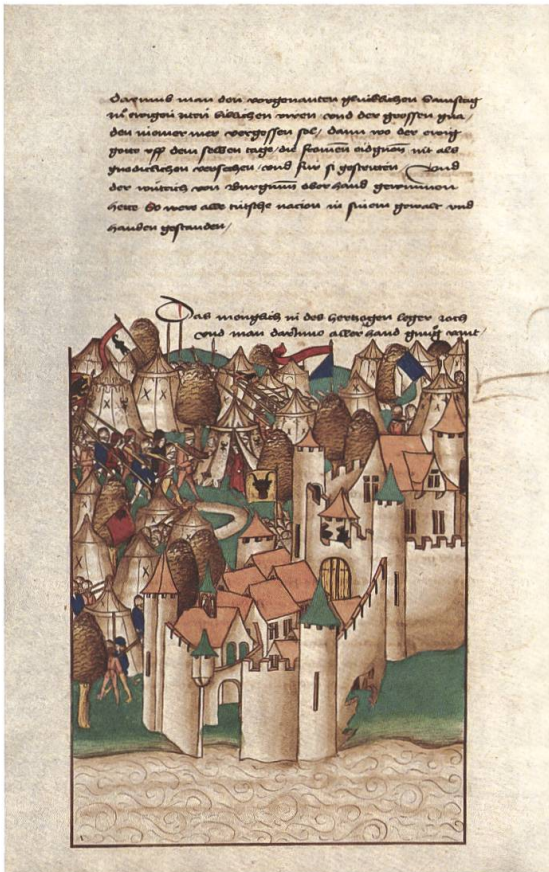 Darumb man den vorgenanten gluͥklichen Samstag
in ewigen ziten billichen viren vnd der grossen gna„
den niemer mer vergessen sol, dann wo der ewig
gott vff dem selben tage, die fromen eidgnossen nit als
gnediclichen versechen, vnd fuͥr si gestritten, Vnd
der wuͤtrich von Burgunn ober hand gewunnen
hette So were alle tuͥtsche nacion in sinem gewalt vnd
handen gestanden,
Das menglich in des hertzogen leger zoch
vnd man darinne aller hand guͦt vant,